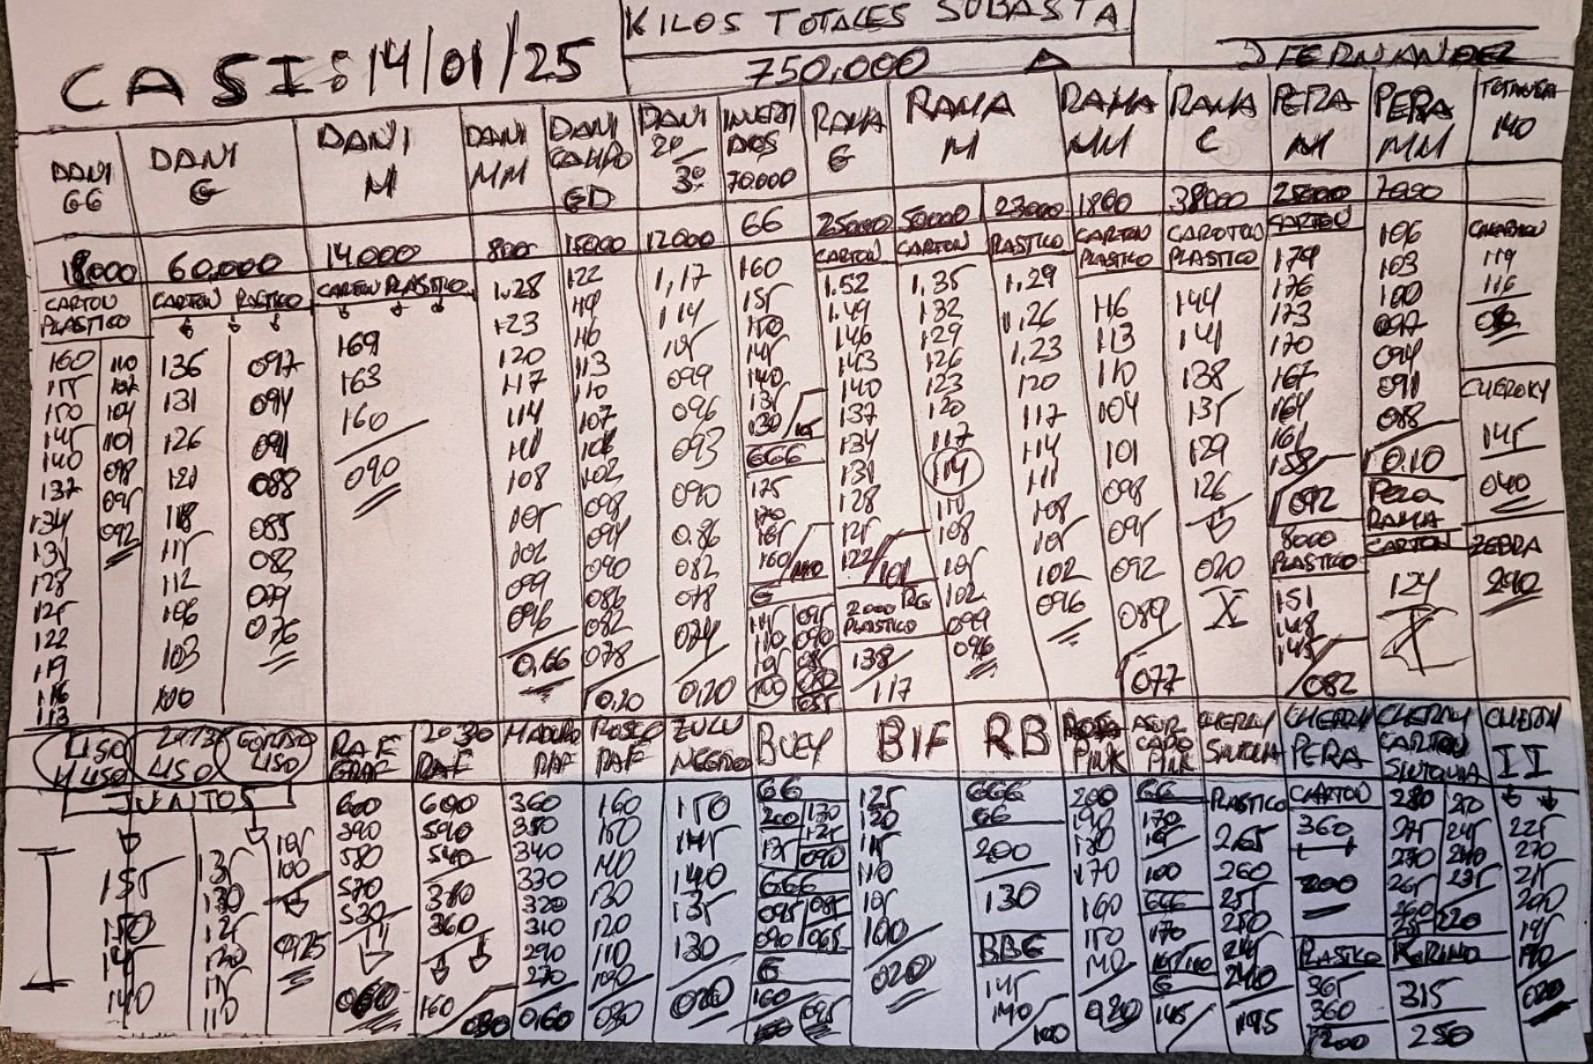 KILOS TOTALES SUBASTA
CASI: 14/01/25
750.000
J FERNANDEZ
DANI GG
DANI G
DANI M
DANI MM
DANI CAMPO GD
DANI 2º/3º
INVERTIDOS 70.000
RAMA G
RAMA M
RAMA MM
RAMA C
PERA M
PERA MM
140
18000
60.000
14.000
800
15000
12000
GG
25000
50000
23000
1800
38000
25000
7000
CARTON PLASTICO
CARTON PLASTICO
CARTON PLASTICO
CARTON
CARTON
PLASTICO
CARTON PLASTICO
CARTON PLASTICO
CARTON
160 155 150 145 140 137 134 131 128 125 122 119 116 113
110 107 104 101 098 095 092
136 131 126 121 118 115 112 106 103 100
097 094 091 088 085 082 079 076
169 163 160
090
1.28 123 120 117 114 111 108 105 102 099 096
0,66
122 119 116 113 110 107 102 098 094 090 086 082 078
0,20
1,17 114 099 096 093 090 0.86 082 078 074
0,20
160 155 150 145 140 135 130/105
GGG
175 170 165 160/140
G
1.52 1.49 146 143 140 137 134 131 128 125 122/101
2000 RG PLASTICO
138/117
1,35 132 129 126 123 120 117 114 110 108 105 102 099 096
1.29 1,26 1,23 120 117 114 111 108 105 102 096
116 113 110 104 101 098 095 092 089
077
144 141 138 135 129 126
020
179 176 173 170 167 164 161 158
092
8000 PLASTICO
151 148 145
082
106 103 100 097 094 091 088
0.10
PERA RAMA
CARTON
124
119 116
CHEROKY
145
040
ZEBRA
240
LISO Y LISO
2º/3º LISO
LISO
RAF GRAF
2º 3º RAF
MADURO RAF
ROSCO RAF
ZULU NEGRO
BUEY
BIF
RB
ROSA PINK
ASURCADO PINK
CHERRY SINTONIA
CHERRY PERA
CHERRY CARTON SINTONIA
CHERRY II
JUNTOS
155 150 145 140
135 130 125 120 115 110
105 100
025
600 590 580 570 530
060
600 590 540 380 360
160/080
360 350 340 330 320 310 290 270
0,60
160 150 140 130 120 110 100
080
150 145 140 135 130
020
GG
200 130
GGG
095 085
090 065
G
160
125 120 115 110 105 100
020
GGG
GG
200
130
BBG
145
140/100
200 190 180 170 160 150 140
020
GG
170
100
GGG
170
G
145
PLASTICO
2,65 260 255 250 245 240
195
CARTON
360
200
PLASTICO
365
360
200
280 275 270 265 260 255
250 245 240 235
220
KORINO
315
250
225 220 215 200 195 190
020